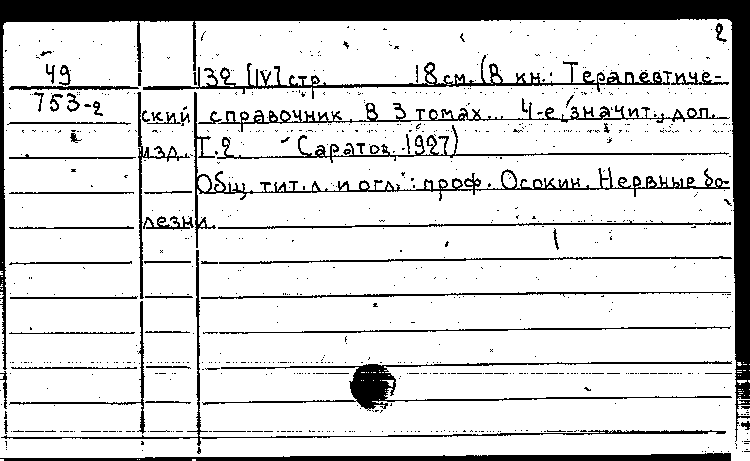 2
49 132, [IV] стр. 18 см. (В кн.: Терапевтиче-
753-2 ский справочник. В 3 томах... 4-е, значит., доп.
изд. Т. 2. Саратов, 1927)
Общ. тит. л. и огл.: проф. Осокин. Нервные бо-
лезни.